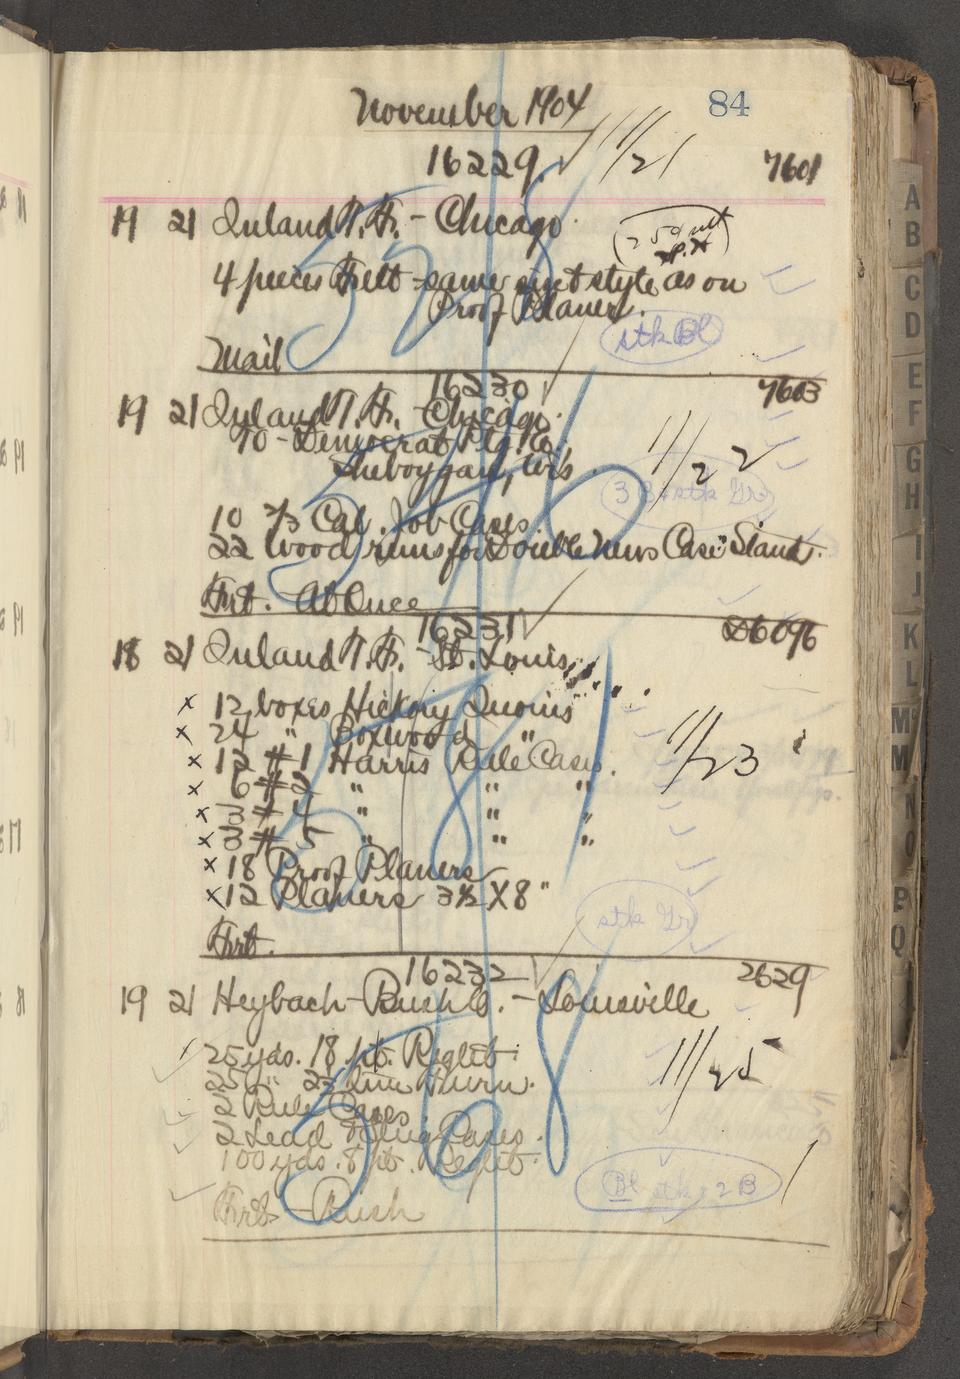 November 1904
84
16229 11/21 7601
19 21 Inland T. F. - Chicago
4 pieces Felt - same size & style as on
Proof Planer.
stk Bl
Mail
16230 7603
19 21 Inland T. F. - Chicago.
To - Democrat Ptg. Co.
Sheboygan, Wis 11/22
10 2/3 Cal. Job Cases
22 Wood runs for Double News Case Stands.
Frt. At Once
16231 26096
18 21 Inland T. F. - St. Louis
x 12 boxes Hickory Quoins
x 24 " Boxwood "
x 12 #1 Harris Rule Cases. 11/23
x 6 #2 " " "
x 3 #4 " " "
x 3 #5 " " "
x 18 Proof Planers
x 12 Planers 3½ X 8"
stk Gr
Frt.
16232 2629
19 21 Heybach-Bush Co. - Louisville
25 yds. 18 pt. Reglet. 11/25
2 Rule Cases
2 Lead & Slug Cases.
100 yds. 8 pt. Reglet.
Bl stk 2 B
Frt - Rush
A
B
C
D
E
F
G
H
I
J
K
L
M
M
N
O
P
Q